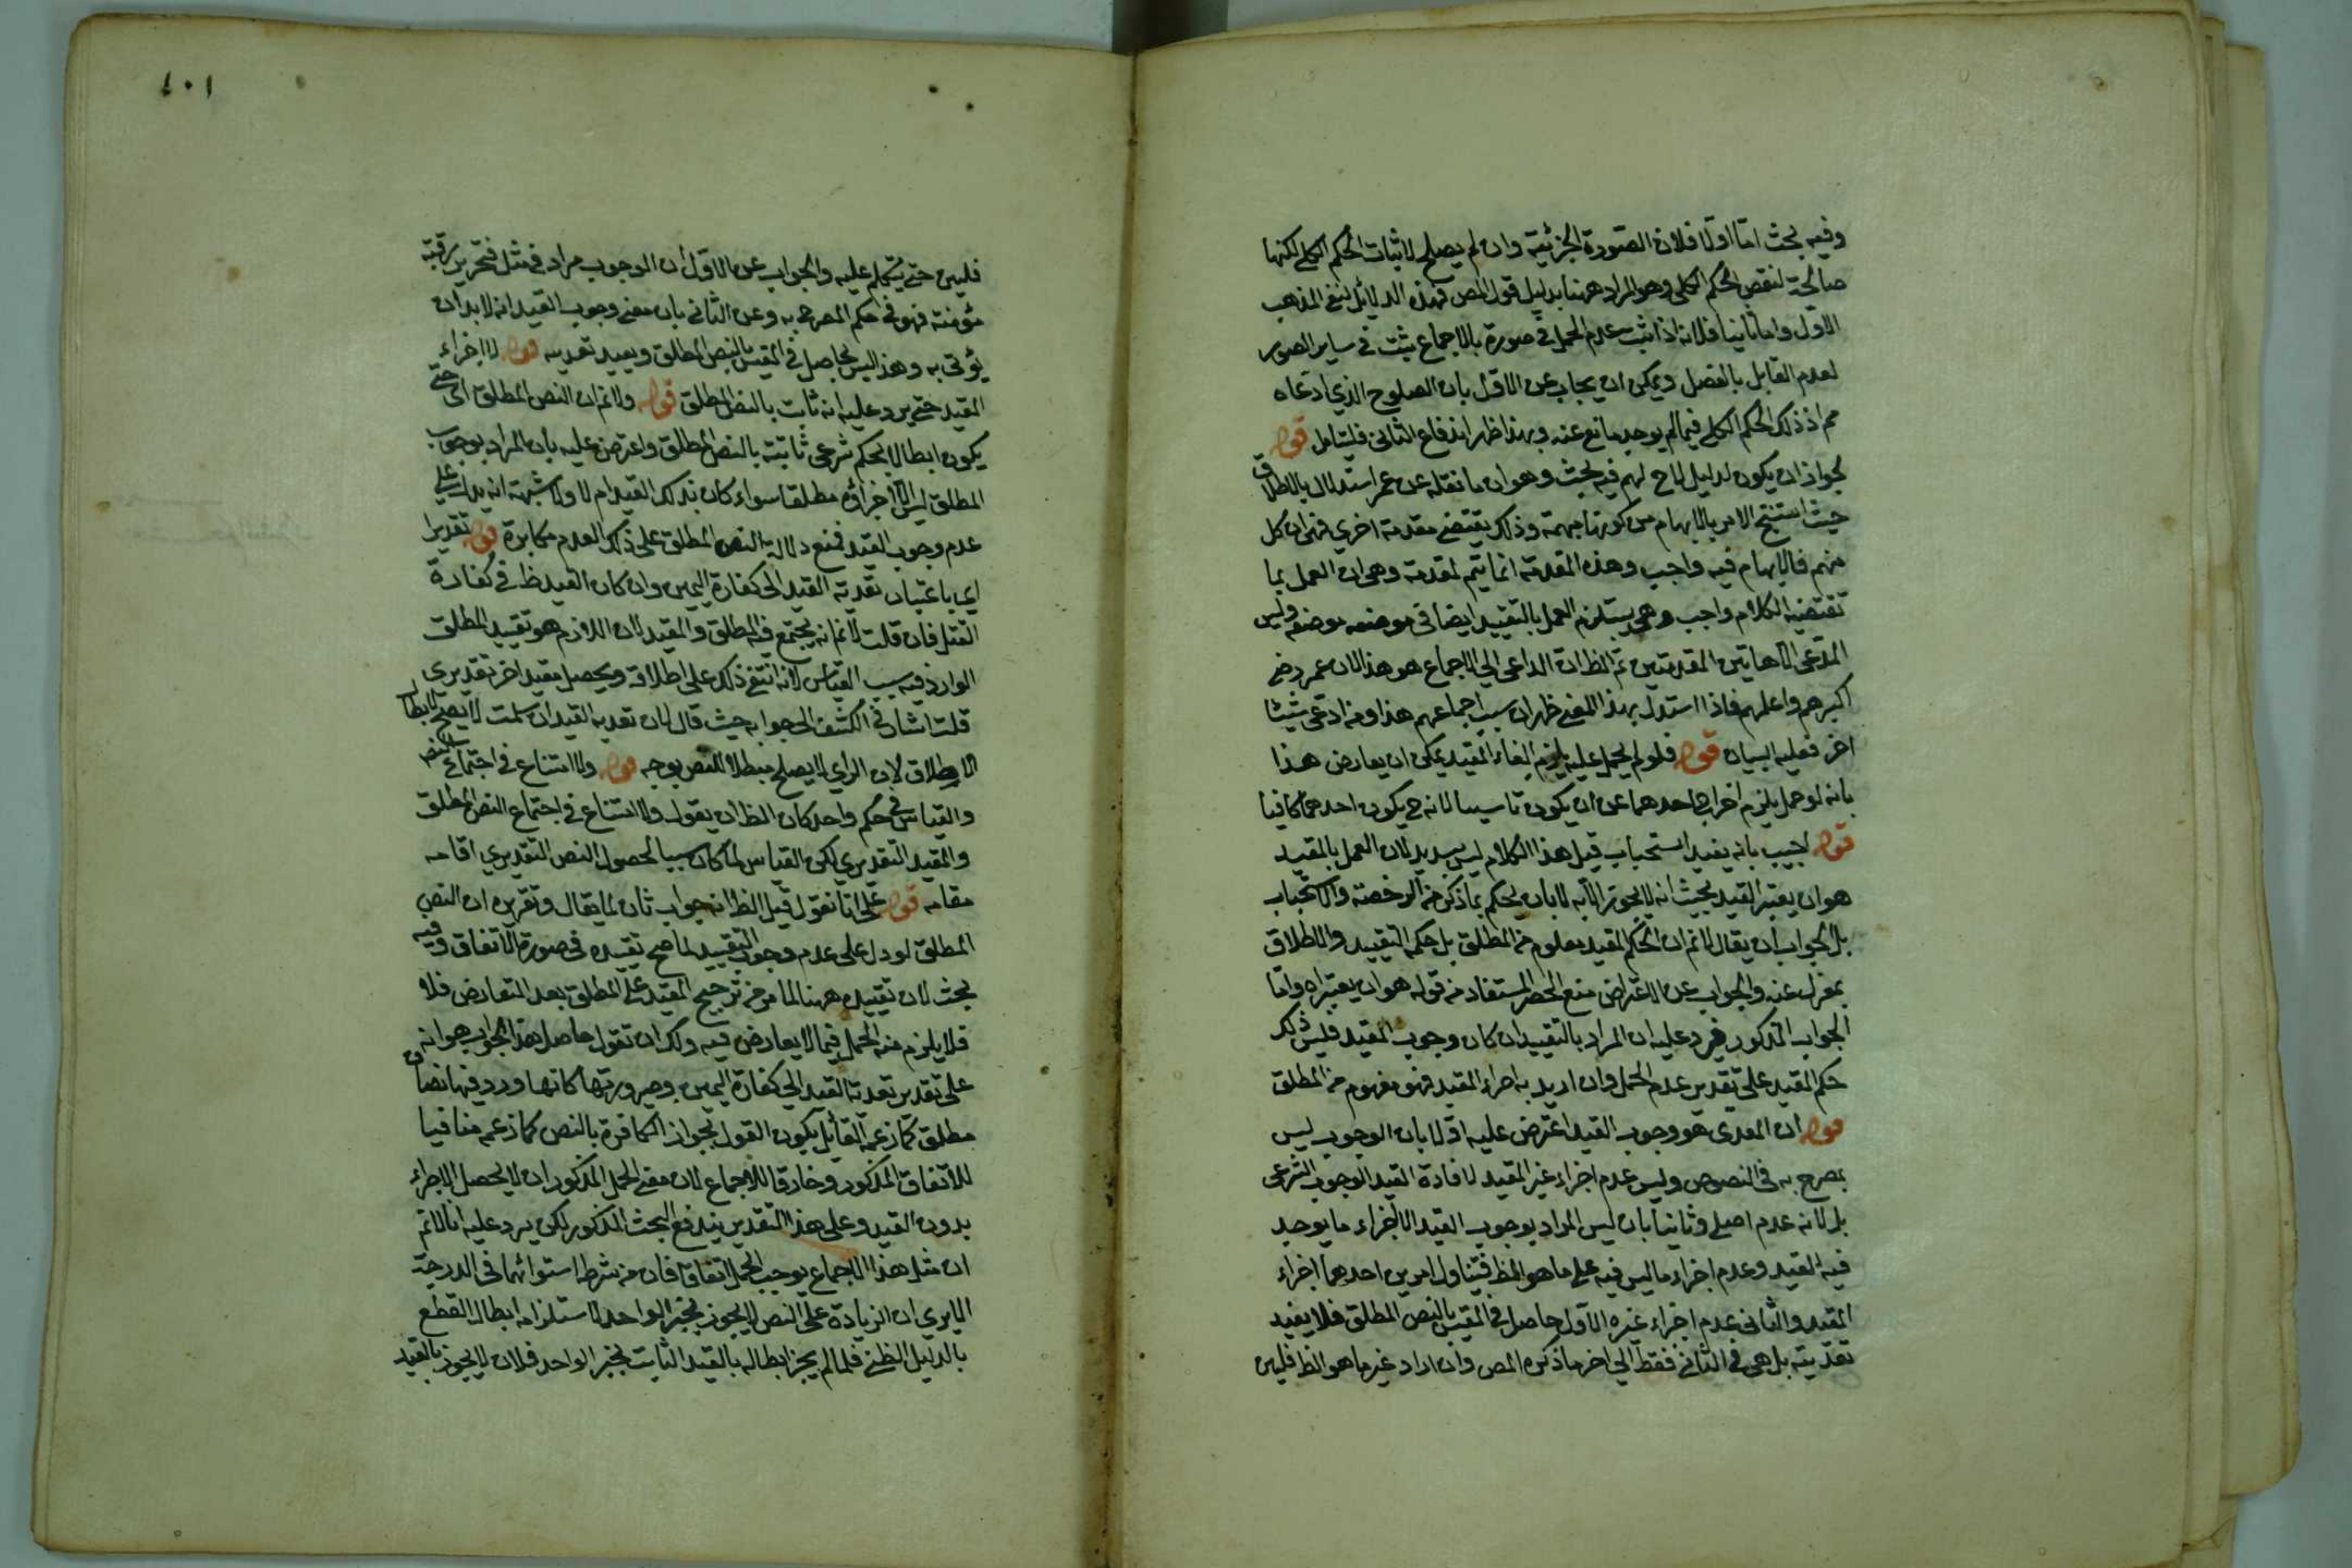 وفيه بحث اما اولا فلان الصورة الجزئية وان لم يصلح لاثبات الحكم الكلي لكنها
صالحة لنقض الحكم الكلي وهو المراد ههنا بدليل قول المص فهذه الدلائل لنفي المذهب
الاول واما ثانيا فلانه اذا ثبت عدم الحمل في صورة بالاجماع يثبت في ساير الصور
لعدم القايل بالفصل ويمكن ان يجاب عن الاول بان الصلوح الذي ادعاه
مح اذ ذلك الحكم الكلي فيما لم يوجد مانع عنه وبهذا ظهر اندفاع الثاني فليتامل قوله
لجواز ان يكون لدليل لاح لهم فيه بحث وهو ان ما نقله عن عمر استدلال بالاطلاق
حيث استنتج الامر بالابهام من كونها مبهمة وذلك يقتضي مقدمة اخري فهي ان كل
مبهم فالابهام فيه واجب وهذه المقدمة انما يتم لمقدمة وهي ان العمل بما
تقتضيه الكلام واجب وهي يستلزم العمل بالتقييد ايضا في موضعه موضعه وليس
المدعى الا هاتين المقدمتين ثم الظ ان الداعي الي الاجماع هو هذا لان عمر رضي
اكبرهم واعلمهم فاذا استدل بهذا المعنى ظهر ان سبب اجماعهم هذا ومن ادعى شيئا
اخر فعليه البيان قوله فلو لم يحمل عليه يلزم الغاء المقيد يمكن ان يعارض هذا
بانه لو حمل يلزم اخراج احدهما عن ان يكون تاسيسا لانه ح يكون احدهما كافيا
قوله اجيب بانه يفيد استحباب قيل هذا الكلام ليس بسديد لان العمل بالمقيد
هو ان يعتبر القيد بحيث انه لا يجوز الا به لا بان يحكم بما ذكر من الرخصة والاستحباب
بل الجواب ان يقال لا نم ان الحكم المقيد معلوم من المطلق بل حكم التقييد والاطلاق
بمعزل عنه والجواب عن الاعتراض منع الحصر المستفاد من قوله هو ان يعتبر اه واما
الجواب المذكور فيرد عليه ان المراد بالتقييد ان كان وجوب المقيد فليس ذلك
حكم المقيد على تقدير عدم الحمل وان اريد به اجراء المقيد فهو مفهوم من المطلق
قوله ان المعدى هو وجوب القيد اعترض عليه اولا بان الوجوب ليس
بمصرح به في النصوص وليس عدم اجزاء غير المقيد لافادة القيد الوجوب الشرعى
بل لانه عدم اصلي وثانيا بان ليس المراد بوجوب القيد الا اجزاء ما يوجد
فيه القيد وعدم اجزاء ما ليس فيه على ما هو الظ فيتناول امرين احدهما اجزاء
المقيد والثاني عدم اجزاء غيره الاول حاصل في المقيس بالنص المطلق فلا يفيد
تعديته بل هي في الثاني فقط الي اخر ما ذكره المص وان اراد غير ما هو الظ فليس
١٠١
فليبين حتى يتكلم عليه والجواب عن الاول ان الوجوب مراد في مثل فتحرير رقبة
مؤمنة فهو في حكم المصرح به وعن الثاني بان معنى وجوب القيد انه لا بد ان
يؤتى به وهذا ليس بحاصل في المقيس بالنص المطلق ويعيد تعديه قوله لا اجزاء
المقيد حتى يرد عليه انه ثابت بالنص المطلق قوله ولا نم ان النص المطلق الى حتى
يكون ابطالا لحكم شرعى ثابتة بالنص المطلق واعترض عليه بان المراد بوجوب
المطلق ليس الا اجزاؤه مطلقا سواء كان بذلك القيد ام لا ولا شبهة انه يدل على
عدم وجوب القيد فمنع دلالة النص المطلق على ذلك العدم مكابرة قوله تقديرا
اي باعتبار تعدية القيد الى كفارة اليمين وان كان القيد ظ في كفارة
القتل فان قلت لا نم انه يجتمع فيه المطلق والمقيد لان اللازم هو تقييد المطلق
الوارد فيه سبب القياس لانه انتفي ذلك على اطلاقه ويحصل مقيد اخر تقديري
قلت اشار في الكشف الى جوابه حيث قال لان تعديه القيد ان سلمت لا يصلح لابطال
الاطلاق لان الراي لا يصلح مبطلا للنص بوجه قوله ولا امتناع في اجتماع النص
والقياس في حكم واحد كان الظ ان يقول ولا امتناع في اجتماع النص المطلق
والمقيد التقديري لكن القياس لما كان سببا لحصول النص التقديري اقامه
مقامه قوله على انا نقول قيل الظ انه جواب ثان لما يقال وتقريره ان النص
المطلق لو دل على عدم وجوب التقييد لما صح تقييده في صورة الاتفاق وفيه
بحث لان تقييده ههنا لما مر من ترجيح المقيد على المطلق بعد التعارض فلا
فلا يلزم منه الحمل فيما لا يعارض فيه ولك ان تقول حاصل هذا الجواب هو انه
على تقدير تعدية القيد الي كفارة اليمين وصيرورتها كانها ورد فيها نصان
مطلق كما زعمه القائل يكون القول بجواز الكافرة بالنص كما زعم منافيا
للاتفاق المذكور وخارقا للاجماع لان معنى الحمل المذكور ان لا يحصل الاجزاء
بدون القيد وعلى هذا التقدير يندفع البحث المذكور لكن يرد عليه انا لا نم
ان مثل هذا الاجماع يوجب الحمل اتفاقا فان من شرط استوائهما في الدرجة
الا يري ان الزيادة على النص لا يجوز بخبر الواحد لاستلزامه ابطال القطع
بالدليل الظني فلما لم يجز ابطاله بالقيد الثابت بخبر الواحد فلان لا يجوز بالقيد